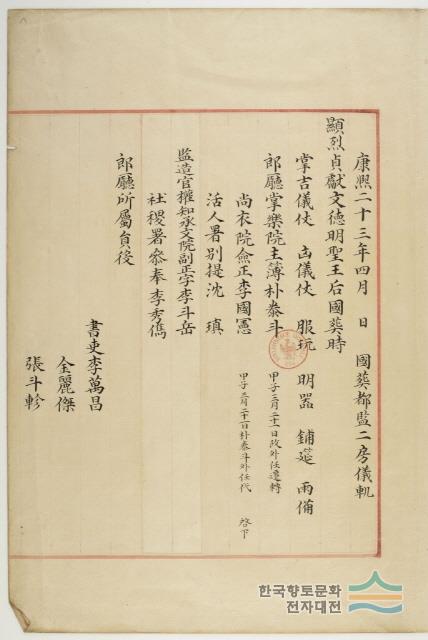 康熙二十三年四月 日 國葬都監二房儀軌
顯烈貞獻文德明聖王后國葬時
掌吉儀仗 凶儀仗 服玩 明器 鋪筵 雨備
郎廳掌樂院主簿朴泰斗 甲子三月二十一日政外任遷轉
尚衣院僉正李國憲 甲子三月二十一日朴泰斗外任代 啓下
活人署別提沈 瑱
監造官權知承文院副正字李斗岳
社稷署參奉李秀儁
郎廳所屬員役
書吏李萬昌
金麗傑
張斗軫
한국향토문화
전자대전